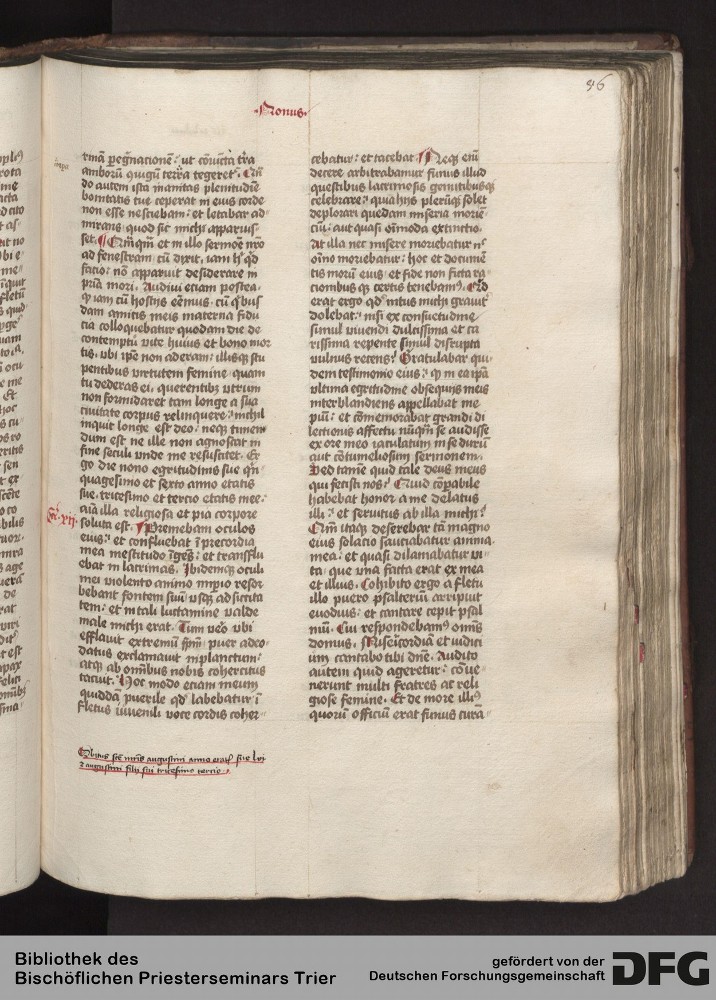 96
Nonus
rinā peg̃nacionē : ut cōiūcta tr̃a
amborū quigū terra tegeret . Cū
do autem ista inanitas plenitudīe
bonitatis tue ceperat in eius corde
non esse nesciebam : et letabar ad
mirans quod sic michi apparuis
set . Qm̄qm̄ et in illo sermoē nr̄o
ad fenestram cū dixit , iam h' qd
facio : nō apparuit desiderare in
pr̄ia mori . Audivi eciam postea ,
q iam cū hostijs eēmus , cū qbus
dam amicis meis materna fidu
cia colloquebatur quodam die de
contemptū vite huius et bono mor
tis , vbi ip̄e non aderam : illisq; stu
pentibus virtutem femine , quam
tu dederas ei , querentibz vtrum
non formidaret tam longe a sua
civitate corpus relinquere : nichil
inquit longe est deo : neq; timen
dum est ne ille non agnoscat in
fine seculi unde me resuscitet . Er
go die nono egritudinis sue qn̄
quagesimo et sexto anno etatis
sue , tricesimo et tercio etatis mee ,
aīa illa religiosa et pia corpore
soluta est . Premebam oculos
eius : et confluebat ī precordia
mea mestitudo īgēs : et transflu
ebat in lacrimas . Ibidemq; oculi
mei violento animo impio resor
bebant fontem suū vsq; ad siccita
tem : et in tali luctamine valde
male michi erat . Tum vēo vbi
efflauit extremū sp̄m : puer adeo
datus exclamauit in planctum :
atq; ab omībus nobis cohercitus
tacuit . Hoc modo etiam meum
quiddā puerile qd' labebatur ī
fletus iuvenili voce cordis coher
cebatur : et tacebat . Neq; enī
decere arbitrabamur funus illud
questibus lacrimosis gemitibusq;
celebrare : quia hijs plerūq; solet
deplorari quedam miseria moriē
ciū : aut quasi om̄ioda extinctio .
At illa nec misere moriebatur nc
om̄o moriebatur : hoc et documē
tis morū eius et fide non ficta ra
cionibus q; certis tenebam' . Quid
erat ergo qd' intus michi grauit'
dolebat : nisi ex consuetudine
simul viuendi dulcissima et ca
rissima repente simul disrupta
vulnus recens ? Gratulabar qui
dem testimonio eius : q in ea ip̄a
vltima egritudine obsequijs meis
interblandiens appellabat me
piū : et cōmemorabat grandi di
lectionis affectu nūqm̄ se audisse
ex ore meo iaculatum in se durū
aut cōtumeliosum sermonem .
Sed tamē quid tale deus meus
qui fecisti nos ? Quid cōpabile
habebat honor a me delatus
illi : et servitus ab illa michi ?
Qm̄ itaq; deserebar tā magno
eius solacio sauciabatur anima
mea : et quasi dilaniabatur vi
ta , que vna facta erat ex mea
et illius . Cohibito ergo a fletu
illo puero psalteriū arripuit
euodius : et cantare cepit psal
mū . Cui respondebam' omīs
domus , Misericordiā et iudici
um cantabo tibi dn̄e . Audito
autem quid ageretur : cōve
nerunt multi fratres ac reli
giose femine . Et de more illis
quorū officiū erat funus curā
Ca . xij
Obitus scē mr̄is augustini anno etatis sue lvi
& augustini filii sui tricesimo tercio .
Bibliothek des
Bischöflichen Priesterseminars Trier
gefördert von der
Deutschen Forschungsgemeinschaft
DFG